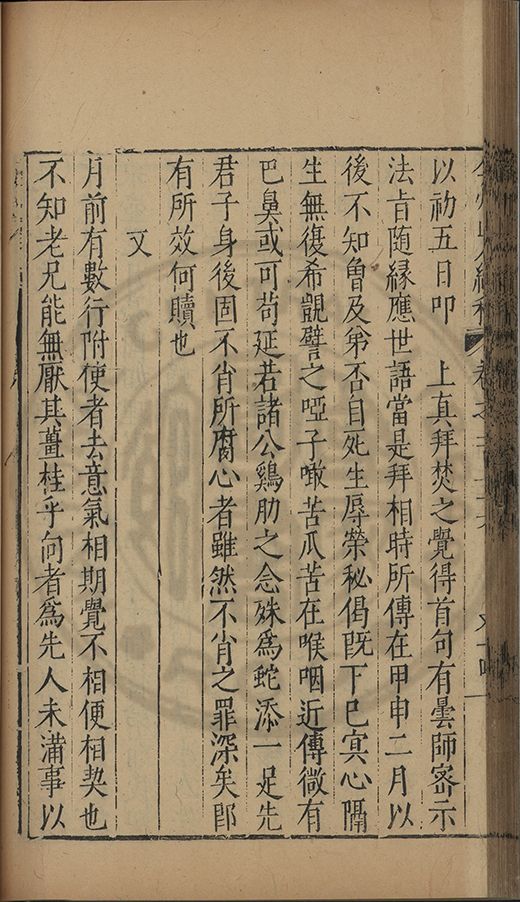 以初五日叩　上真拜焚之覺得首句有曇師密示
法旨随緣應世語當是拜相時所傳在甲申二月以
後不知曾及弟否自死生辱榮秘偈旣下巳㝠心隔
生無復希覬譬之啞子噉苦瓜苦在喉咽近傳微有
巴鼻或可苟延若諸公鷄肋之念姝爲蛇添一足先
君子身後固不肖所腐心者雖然不肖之罪深矣卽
有所效何贖也
又
月前有數行附使者去意氣相期覺不相便相契也
不知老兄能無厭其薑桂乎向者爲先人未滿事以